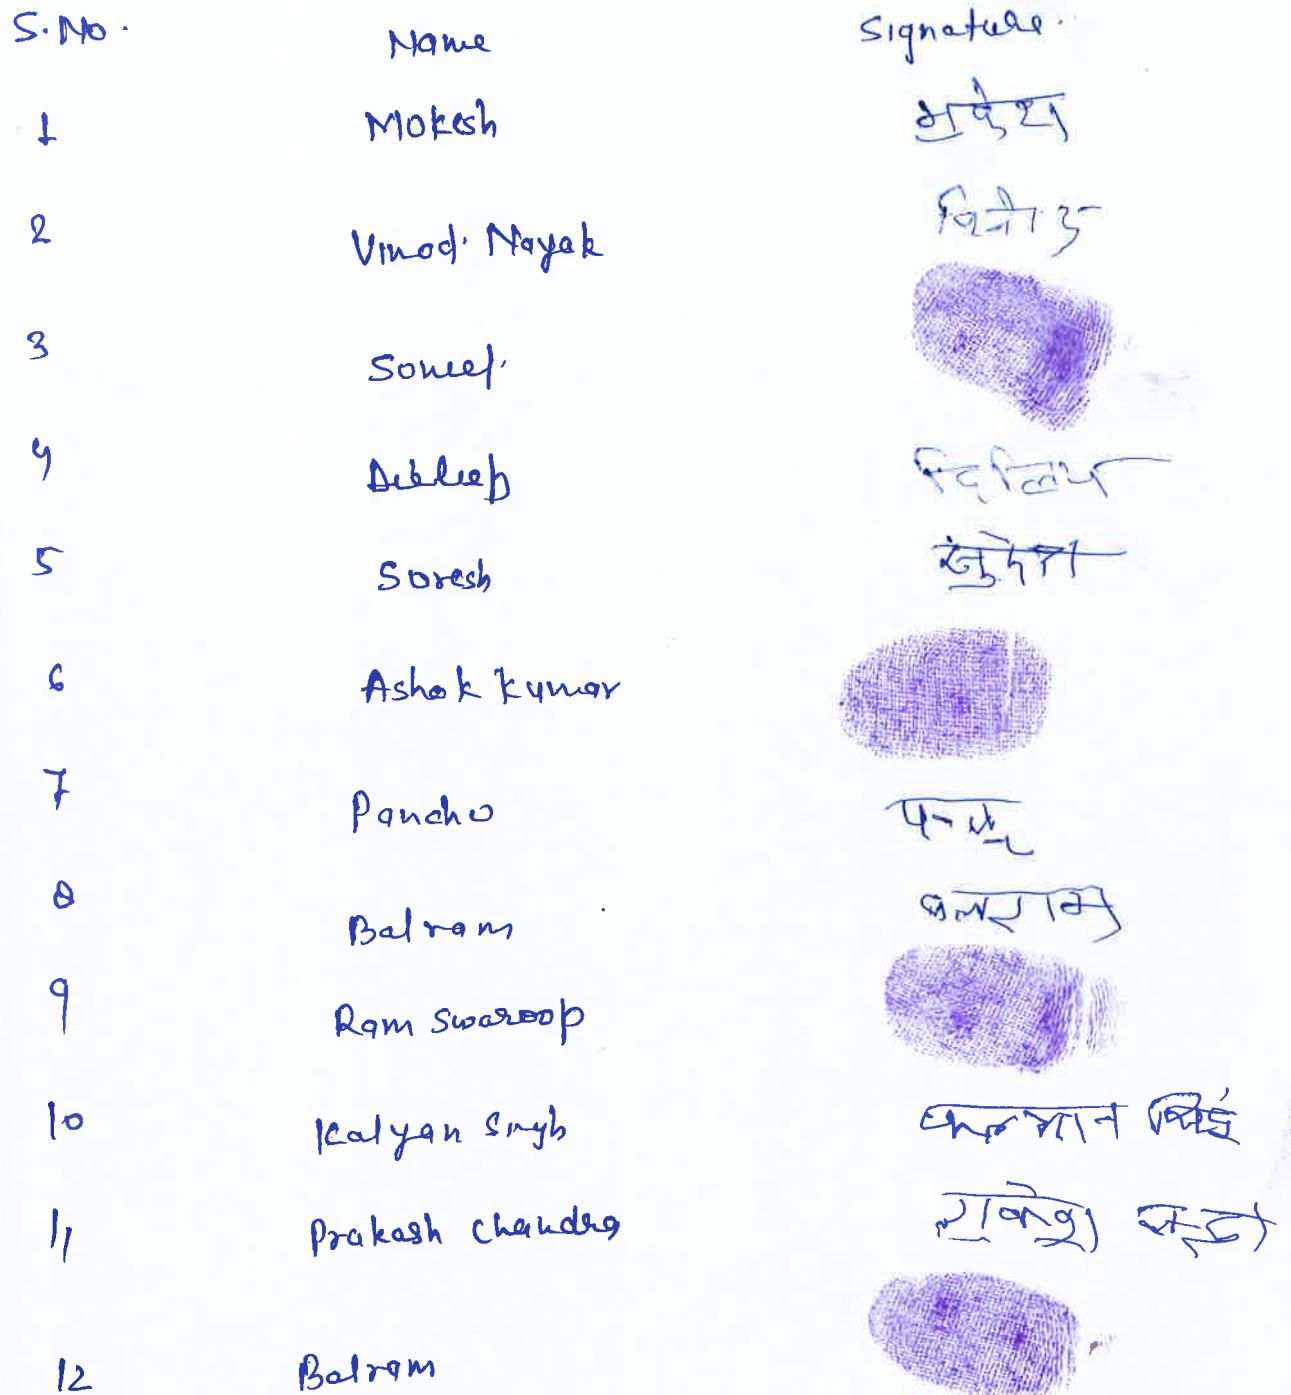 S.No. Name Signature.
1 Mokesh मुकेश
2 Vinod. Nayak विनोद
3
4 दिलिप
5 Soresh सुरेश
6 Ashok Kumar
7 Pancho
8 Balram बलराम
9 Ram Swaroop
10 Kalyan Singh
11 Prakash Chandra
12 Balram